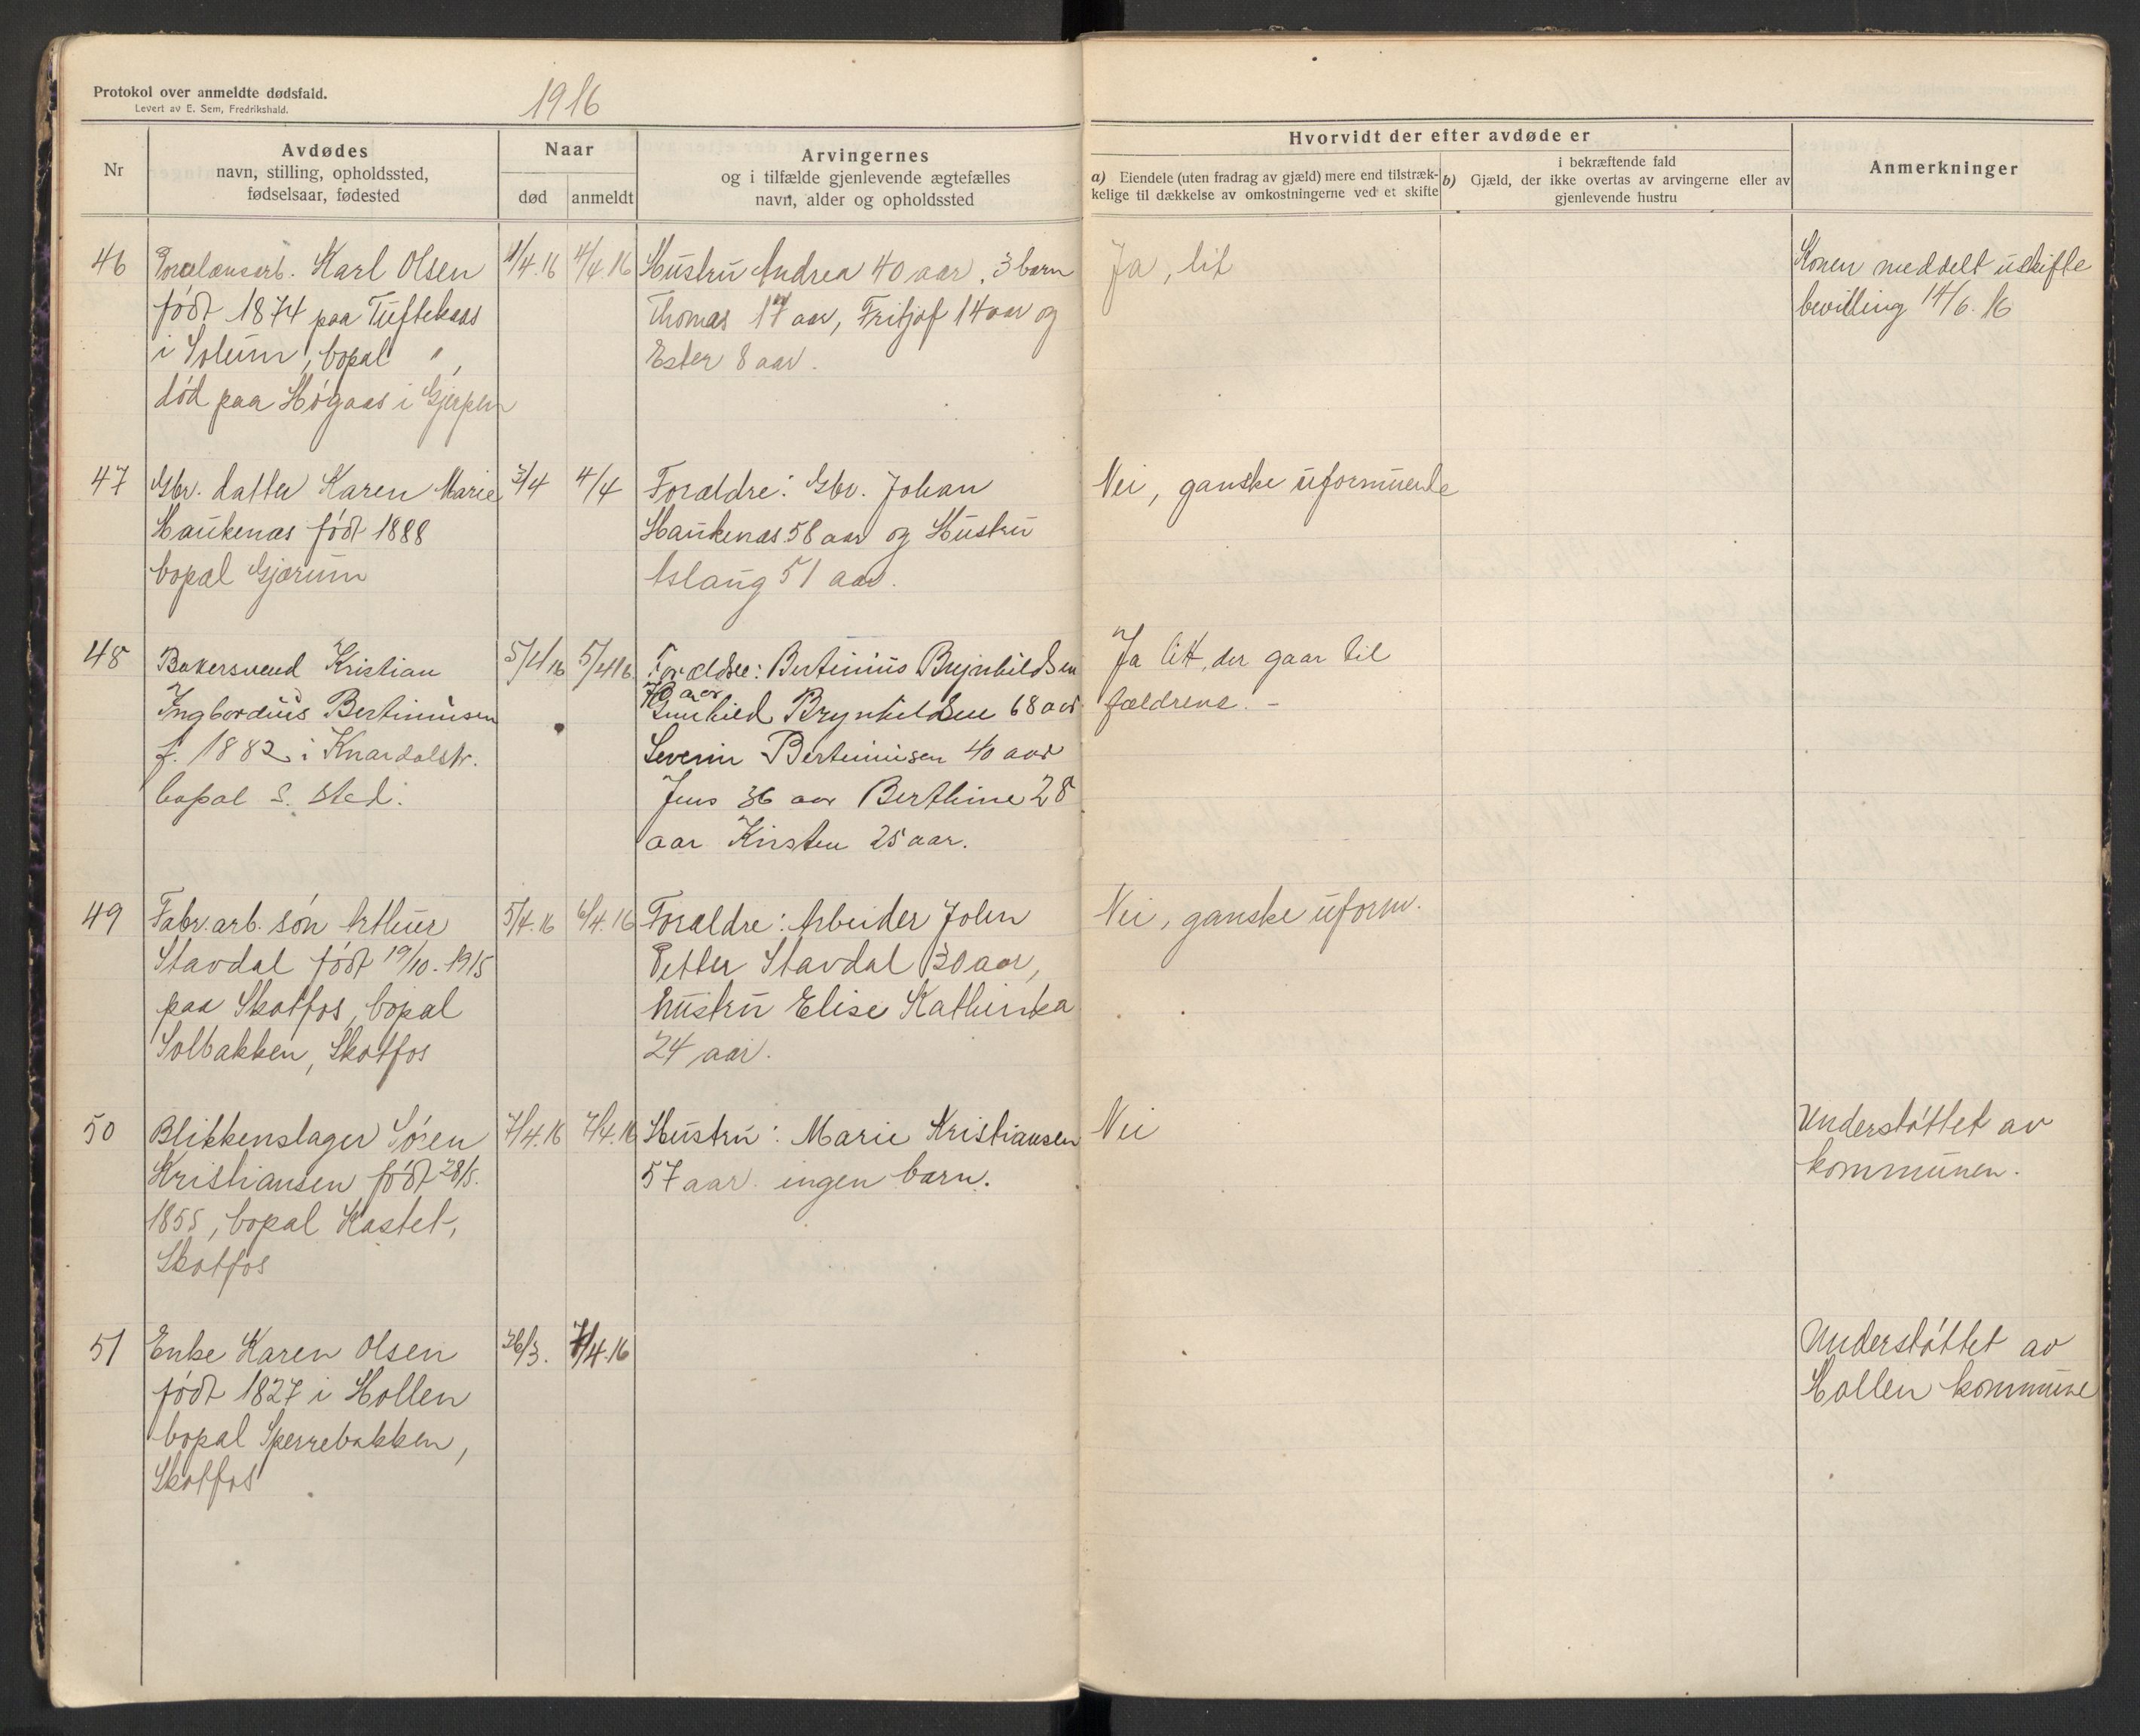 Protokol over anmeldte dødsfald.
Levert av E. Sem, Fredrikshald.
1916
Nr
Avdødes
navn, stilling, opholdssted,
fødselsaar, fødested
Naar
død
anmeldt
Arvingernes
og i tilfælde gjenlevende ægtefælles
navn, alder og opholdssted
Hvorvidt der efter avdøde er
a) Eiendele (uten fradrag av gjæld) mere end tilstræk-
kelige til dækkelse av omkostningerne ved et skifte
i bekræftende fald
b) Gjæld, der ikke overtas av arvingerne eller av
gjenlevende hustru
Anmerkninger
46
Porcelænsarb. Karl Olsen
født 1874 paa Tuftekaas
i Solum, bopal " ,
død paa Høgaas i Gjerpen
1/4.16
4/4.16
Hustru Andrea 40 aar, 3 barn
Thomas 17 aar, Fritjof 14 aar og
Ester 8 aar.
Ja, lit
Konen meddelt uskifte
bevilling 14/6.16
47
Gbr. datter Karen Marie
Haukenæs født 1888
bopal Gjærum
3/4
4/4
Foræeldre: Gbr. Johan
Haukenæs 58 aar og Hustru
Aslaug 51 aar.
Nei, ganske uformuende
48
Bakersvend Kristian
Ingbordius Bertiniusen
f. 1882 i Knardalstr.
bopal s. sted.
5/4 16
5/4 16.
Forældre: Bertinius Brynhildsen
70 aar
Gunhild Brynhildsen 68 aar
Severin Bertiniusen 40 aar
Jens 36 aar Berthine 28
aar Kirsten 25 aar.
Ja litt, der gaar til
fældrene. -
49
Fabr. arb. søn Arthur
Stavdal født 19/10.1915
paa Skotfos, bopal
Solbakken, Skotfos
5/4.16
6/4.16
Forældre: Arbeider John
Petter Stavdal 30 aar,
hustru Elise Kathinka
24 aar.
Nei, ganske uform.
50
Blikkenslager Søren
Kristiansen født 28/5.
1855, bopal Kastet,
Skotfos
7/4.16
7/4.16
Hustru: Marie Kristiansen
57 aar. ingen barn.
Nei
Understøttet av
kommunen.
51
Enke Karen Olsen
født 1827 i Hollen
bopal Sperrebakken,
Skotfos
26/3.
7/4.16
Understøttet av
Hollen kommune